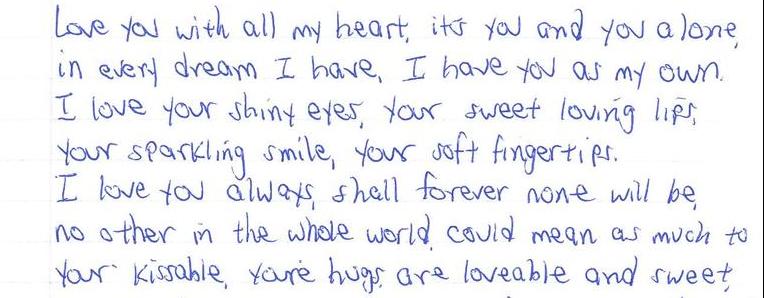 Love you with all my heart, it's you and you alone,
in every dream I have, I have you as my own.
I love your shiny eyes, your sweet loving lips,
your sparkling smile, your soft fingertips.
I love you always, shall forever none will be,
no other in the whole world could mean as much to
your kissable, you're hugs are loveable and sweet,